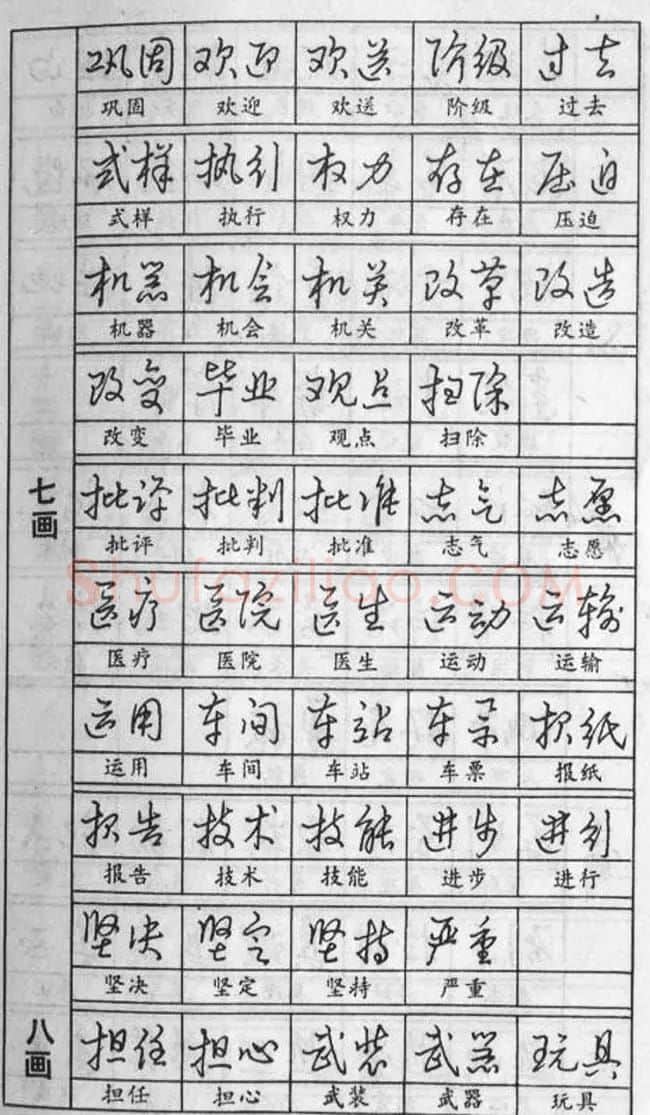 巩固 欢迎 欢送 阶级 过去
巩固 欢迎 欢送 阶级 过去
式样 执行 权力 存在 压迫
式样 执行 权力 存在 压迫
机器 机会 机关 改革 改造
机器 机会 机关 改革 改造
改变 毕业 观点 扫除
改变 毕业 观点 扫除
七画
批评 批判 批准 志气 志愿
批评 批判 批准 志气 志愿
Shufaziliao.COM
医疗 医院 医生 运动 运输
医疗 医院 医生 运动 运输
运用 车间 车站 车票 报纸
运用 车间 车站 车票 报纸
报告 技术 技能 进步 进行
报告 技术 技能 进步 进行
坚决 坚定 坚持 严重
坚决 坚定 坚持 严重
八画
担任 担心 武装 武器 玩具
担任 担心 武装 武器 玩具